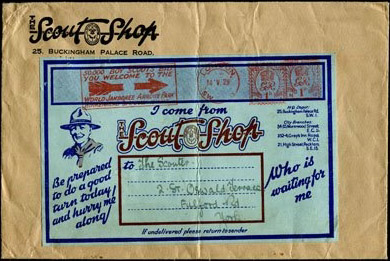 THE Scout Shop
25, BUCKINGHAM PALACE ROAD.
50,000 BOY SCOUTS BID
YOU WELCOME TO THE
WORLD JAMBOREE ARROWE PARK
LONDON
S.W.1
I come from
THE Scout Shop
H.Q. Depot:
25, Buckingham Palace Rd.
S.W.1
City Branches:
E.C.2
W.C.1
21, High Street, Peckham,
S.E.15
Be prepared
to do a good
turn today!
and hurry me
along!
to The Scouter
2 St. Oswald Terrace
Fulford Rd
York
Who is
waiting for
me
If undelivered please return to sender